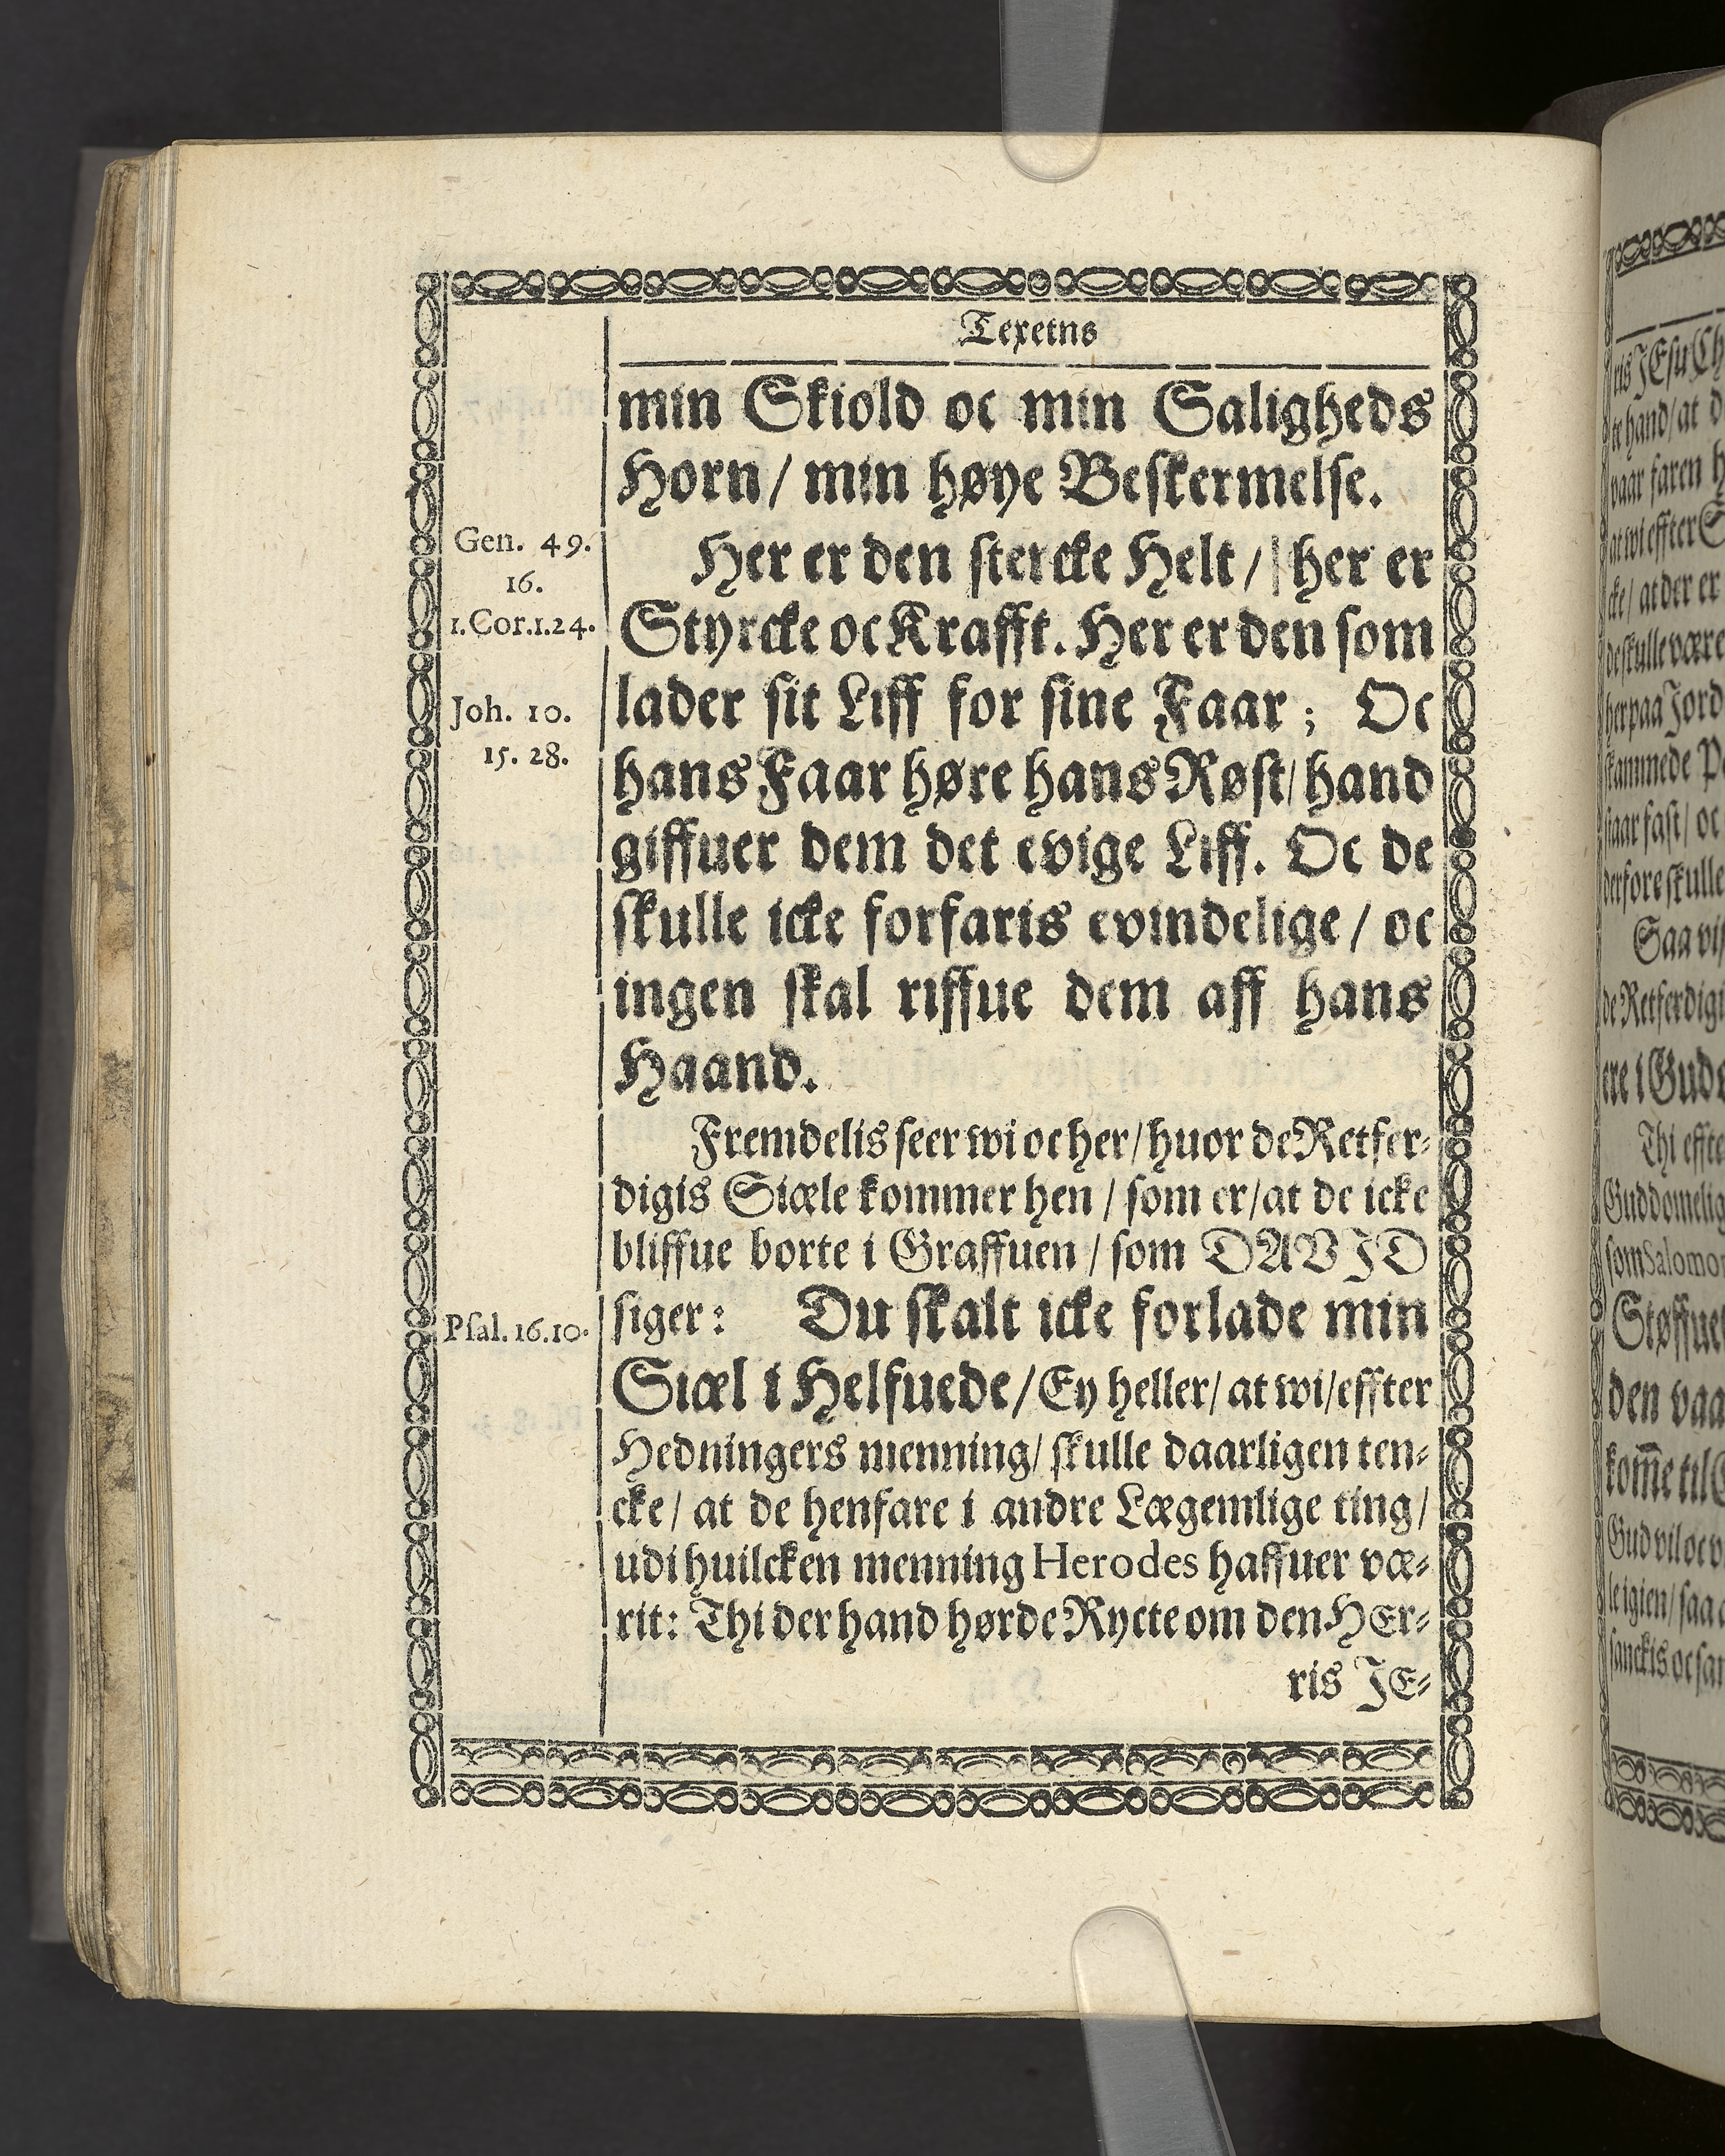 Texetns
min Skiold oc min Saligheds
Horn / min høye Beskermelse.
Gen. 49.
16.
1. Cor. 1. 24.
Joh. 10.
15. 28.
Her er den stercke Helt / her er
Styrcke oc Krafft. Her er den som
lader sit Liff for sine Faar ; Oc
hans Faar høre hans Røst / hand
giffuer dem det evige Liff. Oc de
skulle icke forfaris evindelige / oc
ingen skal riffue dem aff hans
Haand.
Fremdelis seer wi oc her / huor de Retfer-
digis Siæle kommer hen / som er / at de icke
bliffue borte i Graffuen / som DAVID
Psal. 16. 10.
siger: Du skalt icke forlade min
Siæl i Helfuede / Ey heller / at wi / effter
Hedningers menning / skulle daarligen ten-
cke / at de henfare i andre Lægemlige ting /
udi huilcken menning Herodes haffuer væ-
rit: Thi der hand hørde Rycte om den HEr-
ris JE-